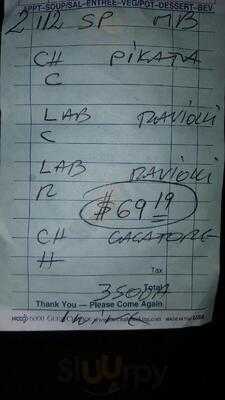 APPT-SOUP/SAL-ENTREE-VEG/POT-DESSERT-BEV
2 112 SP MB
CH PIKATA
C
LAB RAVIOLI
C
LAB RAVIOLI
R
$69 19
CH CACATORE
H
Tax
3 SODA
Total
Thank You — Please Come Again
5000
MADE IN USA
sluurpy